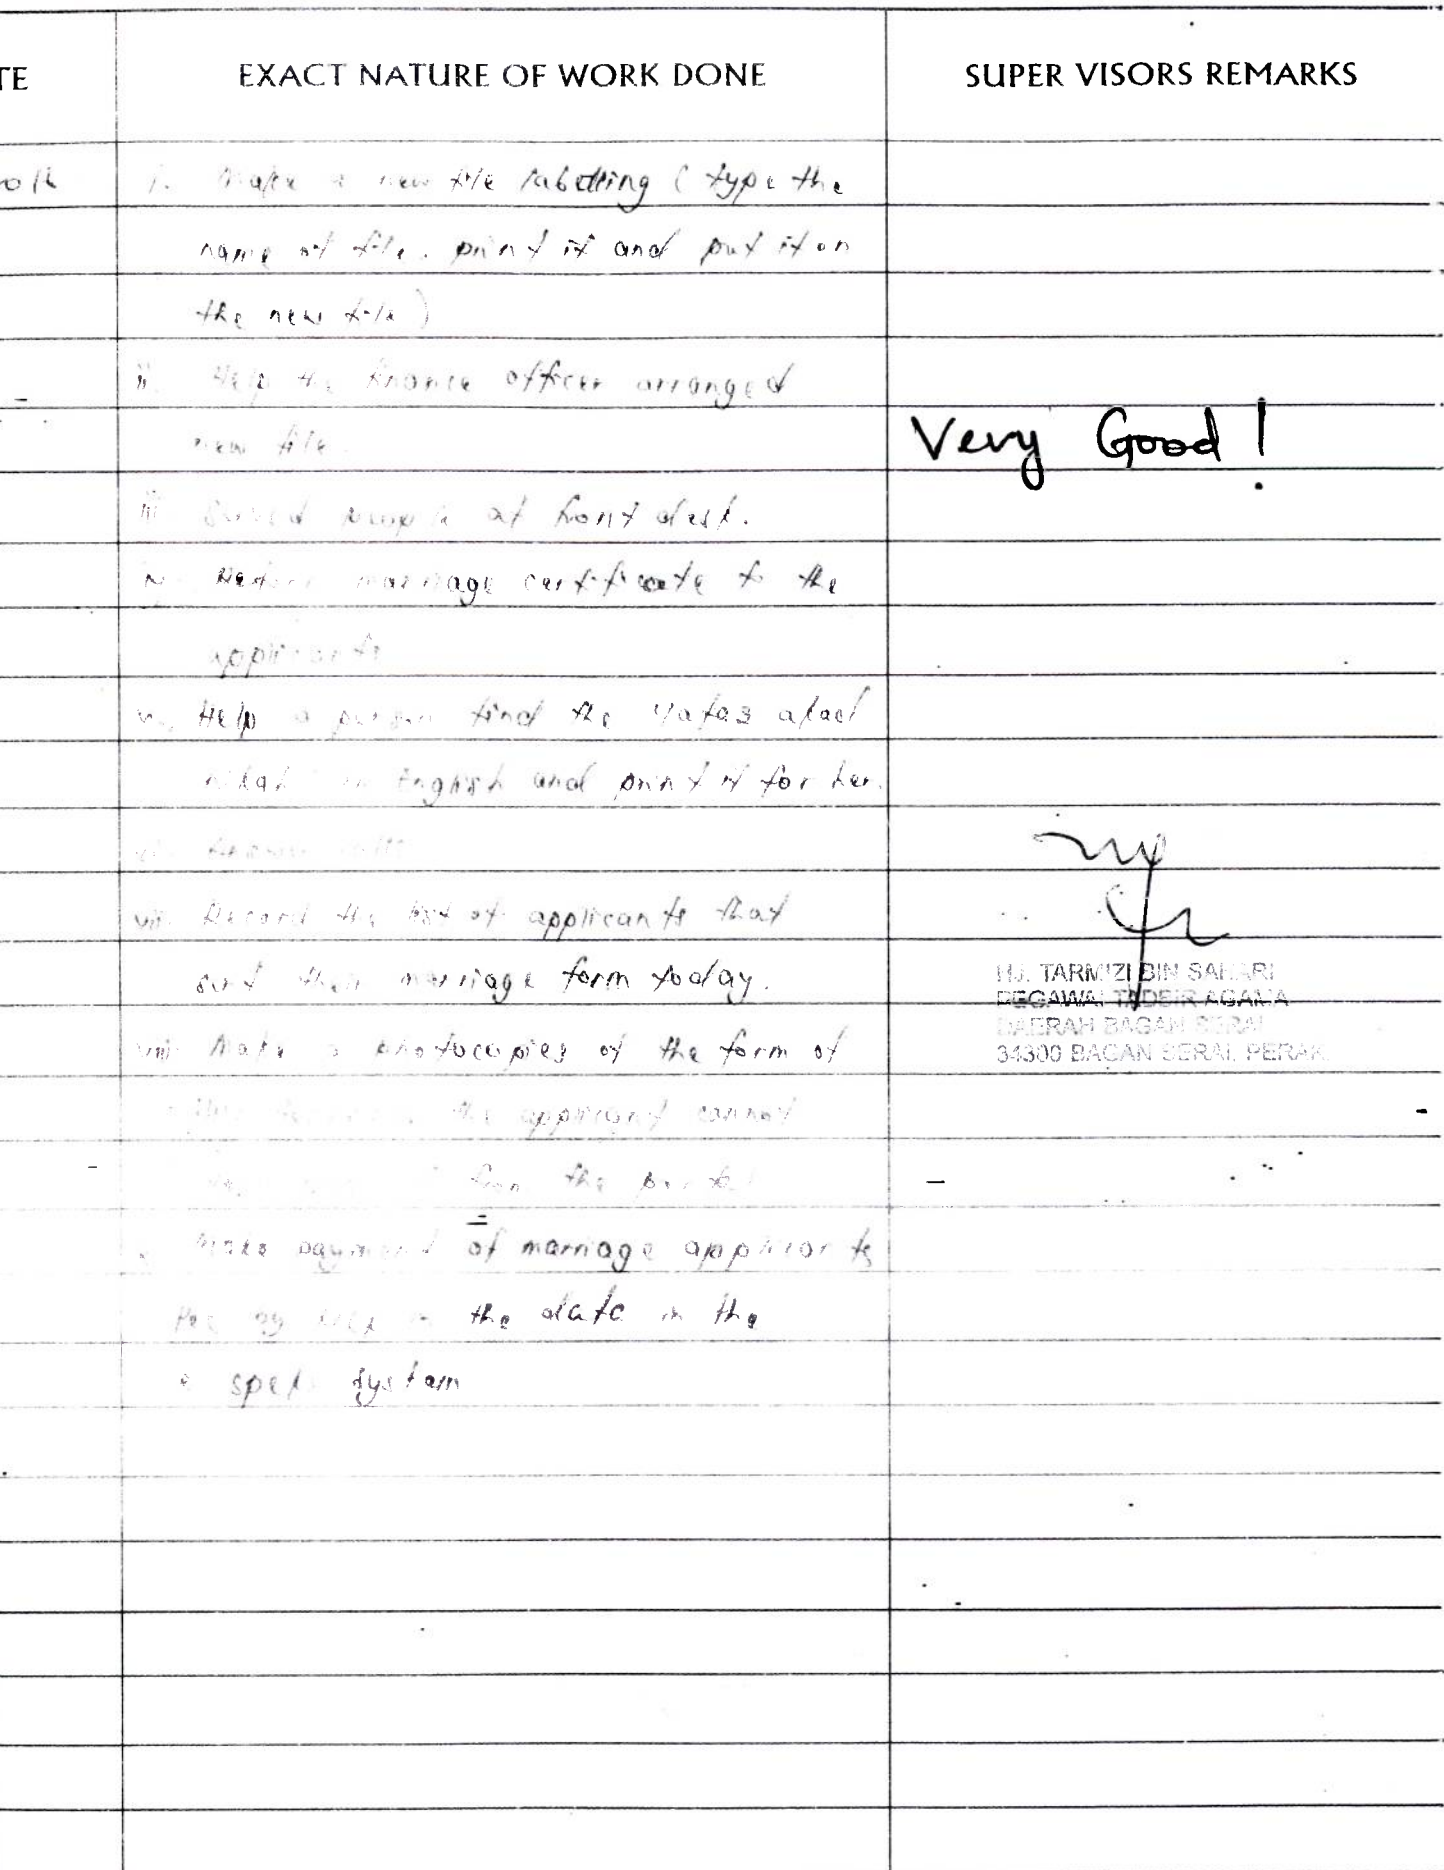 TE
EXACT NATURE OF WORK DONE
SUPER VISORS REMARKS
i. Make a new file labelling ( type the
name of file. print it and put it on
the new file )
ii. Help the finance officer arranged
new file.
Very Good !
iii. Served people at front desk.
iv. Return marriage certificate to the
applicants
v. Help a person find the lafaz akad
nikah in English and print it for her.
vi. Answer calls
vii. Record the list of applicants that
sent their marriage form today.
viii. Make a photocopies of the form of
the applicant cannot
from the portal
Make payment of marriage applicants
by the date in the
system
HJ. TARMIZI BIN SAHARI
PEGAWAI TADBIR AGAMA
DAERAH BAGAN SERAI
34300 BAGAN SERAI, PERAK